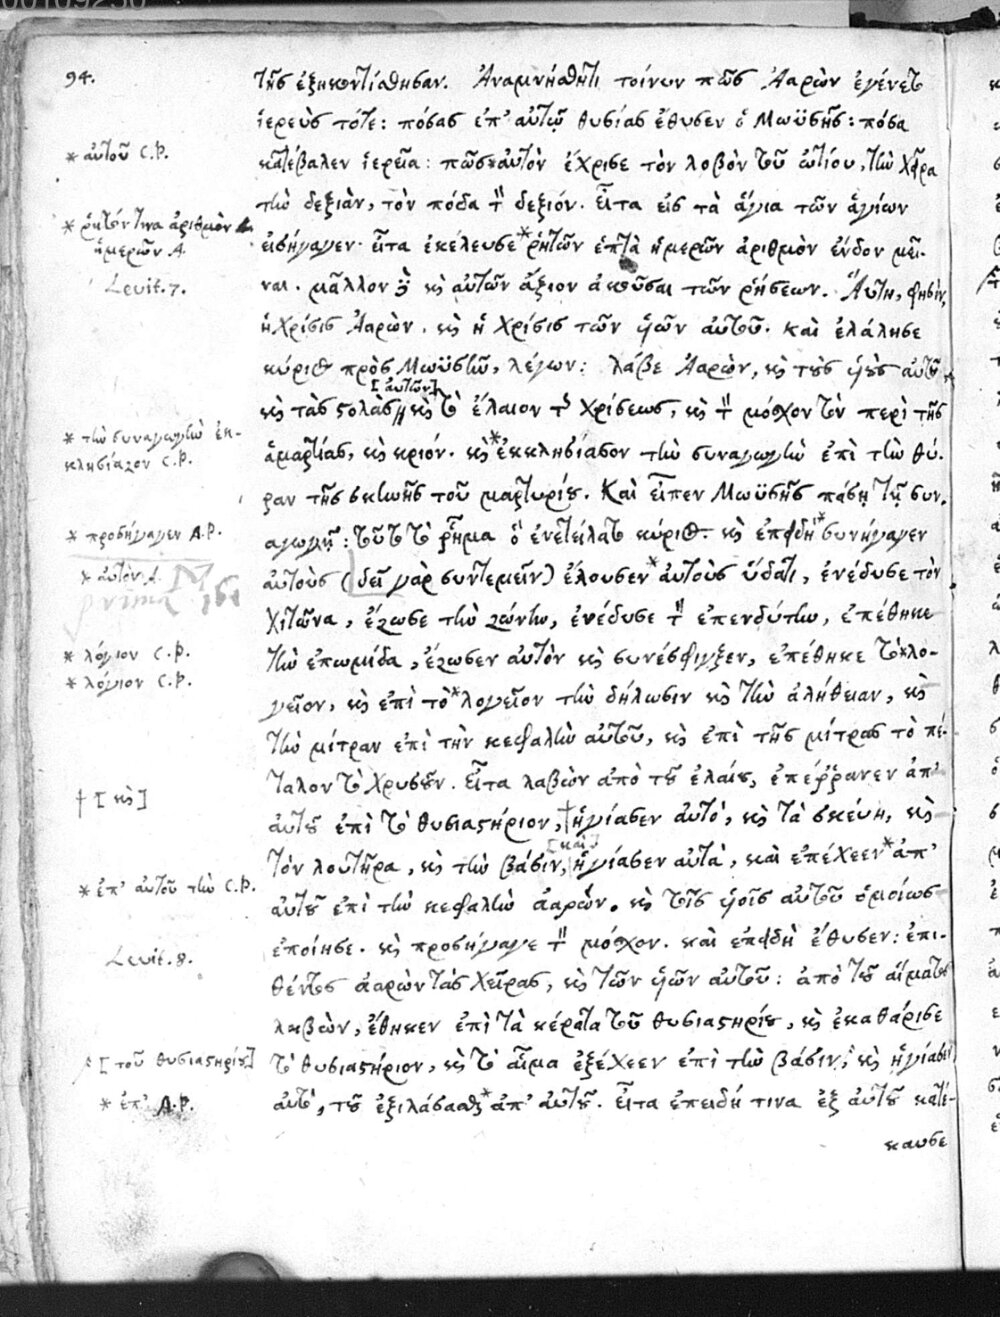 94.
της ἐξηκοντίσθησαν. Ἀναμνήσθητι τοίνυν πῶς Ἀαρὼν ἐγένετο
ἱερεὺς τότε: πόσας ἐπ' αὐτῷ θυσίας ἔθυσεν ὁ Μωϋσῆς: πόσα
* αὐτοῦ C.P.
κατέβαλεν ἱερεῖα: πῶς*αὐτὸν ἔχρισε τὸν λοβὸν τοῦ ὠτίου, τὴν χεῖρα
τὴν δεξιὰν, τὸν πόδα τὸν δεξιόν. Εἶτα εἰς τὰ ἅγια τῶν ἁγίων
* ῥητόν τινα ἀριθμὸν
ἡμερῶν A.
εἰσήγαγεν. εἶτα ἐκέλευσε *ῥητῶν ἑπτὰ ἡμερῶν ἀριθμὸν ἔνδον μεῖ-
Levit. 7.
ναι. μᾶλλον δὲ καὶ αὐτῶν ἄξιον ἀκοῦσαι τῶν ῥήσεων. Αὕτη, φησὶν,
ἡ χρίσις Ἀαρὼν. καὶ ἡ χρίσις τῶν υἱῶν αὐτοῦ. καὶ ἐλάλησε
κύριος πρὸς Μωϋσῆν, λέγων: λάβε Ἀαρὼν, καὶ τοὺς υἱοὺς αὐτοῦ
[αὐτῶν]
καὶ τὰς στολὰς καὶ τὸ ἔλαιον τῆς χρίσεως, καὶ τὸν μόσχον τὸν περὶ τῆς
* τὴν συναγωγὴν ἐκ-
κλησίασον C.P.
ἁμαρτίας, καὶ κριόν. καὶ *ἐκκλησίασον τὴν συναγωγὴν ἐπὶ τὴν θύ-
ραν τῆς σκηνῆς τοῦ μαρτυρίου. Καὶ εἶπεν Μωϋσῆς πάσῃ τῇ συν-
* προσήγαγεν A.P.
αγωγῇ: τοῦτο τὸ ῥῆμα ὃ ἐνετείλατο κύριος. καὶ ἐπειδὴ *συνήγαγεν
* αὐτὸν A.
prima
αὐτοὺς (δεῖ γὰρ συντεμεῖν) ἔλουσεν *αὐτοὺς ὕδατι, ἐνέδυσε τὸν
χιτῶνα, ἔζωσε τὴν ζώνην, ἐνέδυσε τὸν ἐπενδύτην, ἐπέθηκε
* λόγιον C.P.
τὴν ἐπωμίδα, ἔζωσεν αὐτὸν καὶ συνέσφιγξεν, ἐπέθηκε τὸ*λο-
* λόγιον C.P.
γεῖον, καὶ ἐπὶ τὸ *λογεῖον τὴν δήλωσιν καὶ τὴν ἀλήθειαν, καὶ
τὴν μίτραν ἐπὶ τὴν κεφαλὴν αὐτοῦ, καὶ ἐπὶ τῆς μίτρας τὸ πέ-
ταλον τὸ χρυσοῦν. Εἶτα λαβὼν ἀπὸ τοῦ ἐλαίου, ἐπέρρανεν ἀπ'
† [καὶ]
αὐτοῦ ἐπὶ τὸ θυσιαστήριον, †ἡγίασεν αὐτό, καὶ τὰ σκεύη, καὶ
[καὶ]
τὸν λουτῆρα, καὶ τὴν βάσιν, ἡγίασεν αὐτὰ, καὶ ἐπέχεεν *ἀπ'
* ἐπ' αὐτοῦ τὴν C.P.
αὐτοῦ ἐπὶ τὴν κεφαλὴν ἀαρών. καὶ τοῖς υἱοῖς αὐτοῦ ὁμοίως
Levit. 8.
ἐποίησε. καὶ προσήγαγε τὸν μόσχον. καὶ ἐπειδὴ ἔθυσεν: ἐπι-
θέντος ἀαρὼν τὰς χεῖρας, καὶ τῶν υἱῶν αὐτοῦ: ἀπὸ τοῦ αἵματος
λαβὼν, ἔθηκεν ἐπὶ τὰ κέρατα τοῦ θυσιαστηρίου, καὶ ἐκαθάρισε
[τοῦ θυσιαστηρίου]
τὸ θυσιαστήριον, καὶ τὸ αἷμα ἐξέχεεν ἐπὶ τὴν βάσιν, καὶ ἡγίασεν
* ἐπ' A.P.
αὐτὸ, τοῦ ἐξιλάσασθαι *ἀπ' αὐτοῦ. Εἶτα ἐπειδή τινα ἐξ αὐτοῦ κατέ-
καυσε